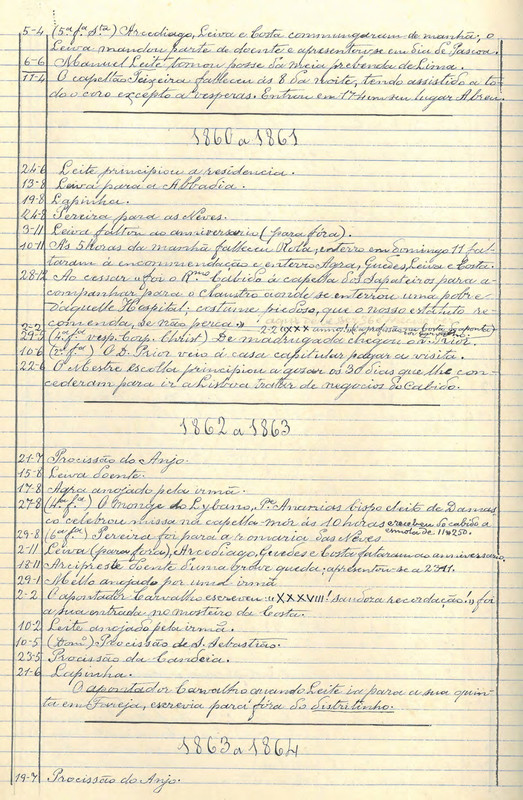 5-4 (5ª fª Stª) Arcediago, Leiva e Costa commungaram de manhã; o
Leiva mandou parte de doente e apresentou-se em dia de Pascoa.
6-6 Manuel Leite tomou posse da meia prebenda de Lima.
11-4 O capellão Teixeira falleceu ás 8 da noite, tendo assistido a to-
do o coro excepto a vesperas. Entrou em 17-4 em seu lugar Abreu.
1860 a 1861
24-6 Leite principiou a residencia.
13-8 Leiva para a Abbadia.
19-8 Lapinha.
24-8 Pereira para as Neves.
3-11 Leiva faltou ao anniversario (para fóra).
10-11 Ás 5 horas da manhã falleceu Rola, enterro em domingo 11. Fal-
taram á encommendação e enterro Agra, Guedes, Leiva e Costa.
28-12 Ao cessar "foi o R.mo Cabido á capella dos Sapateiros para a-
companhar para o claustro aonde se enterrou uma pobre
d'aquelle Hospital; costume piedoso, que o nosso estatuto re-
comenda, se não perca."
2-2 2-2 (XXX annos! da profissão na Costa do aponta-
dor Carvalho.
29-5 (4.ª fª vesp. Corp. Christi) De madrugada chegou o D. Prior.
10-6 (2ª fª) O D. Prior veio á casa capitular pagar a visita.
22-6 O Mestre Escolla principiou a gosar os 30 dias que lhe con-
cederam para ir a Lisboa tratar de negocios do Cabido.
1862 a 1863
21-7 Procissão do Anjo.
15-8 Leiva doente.
17-8 Agra anojado pela irmã.
27-8 (4ª fª) O monge do Lybano, Pe Ananias bispo eleito de Damas
co celebrou missa na capella-mór ás 10 horas e recebeu do cabido a
esmola de 11$250.
29-8 (6ª fª) Pereira foi para a romaria das Neves
2-11 Leiva (para fóra), Arcediago, Guedes e Costa faltaram ao anniversario.
18-11 Arcipreste doente d'uma breve queda; apresentou-se a 23-11.
29-1 Mello anojado por uma irmã
2-2 O apontador Carvalho escreveu "XXXVIII! saudoza recordação!" foi
a sua entrada no mosteiro da Costa.
10-2 Leite anojado pela irmã.
10-5 (Domº) Procissão de S. Sebastião.
23-5 Procissão da Candeia.
21-6 Lapinha.
O apontador Carvalho quando Leite ia para a sua quin-
ta em Fareja, escrevia para fóra do distretinho.
1863 a 1864
19-7 Procissão do Anjo.